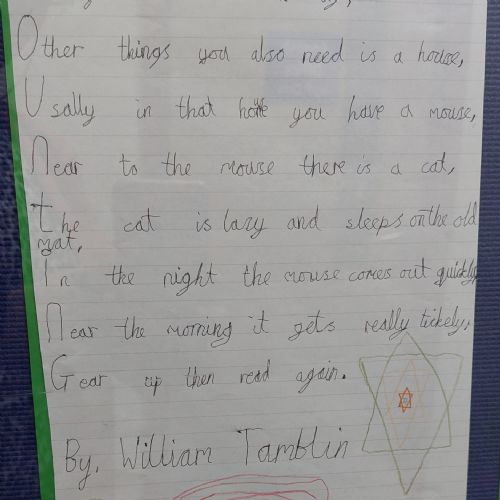 Other things you also need is a house,
Usally in that home you have a mouse,
Near to the mouse there is a cat,
the cat is lazy and sleeps on the old
mat,
In the night the mouse comes out quickly,
Near the morning it gets really tickely,
Gear up then read again.
By, William Tamblin